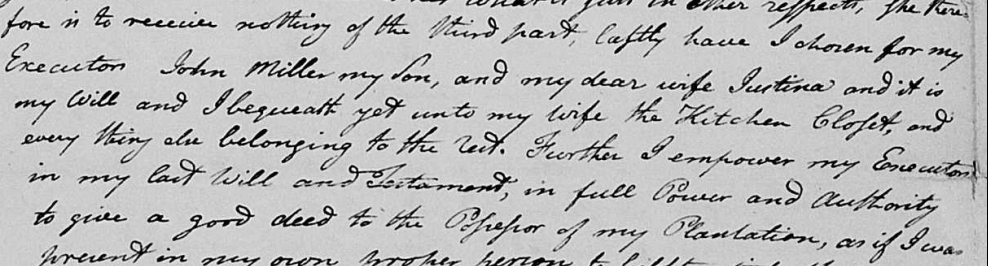 in other respects, she there=
fore is to receive nothing of the third part, lastly have I chosen for my
Executors John Miller my Son, and my dear wife Justina and it is
my Will and I bequeath yet unto my wife the Kitchen Closet, and
every thing else belonging to the Bed. Further I empower my Executors
in my last Will and Testament, in full Power and Authority
to give a good deed to the Possessor of my Plantation, as if I was
present in my own proper person